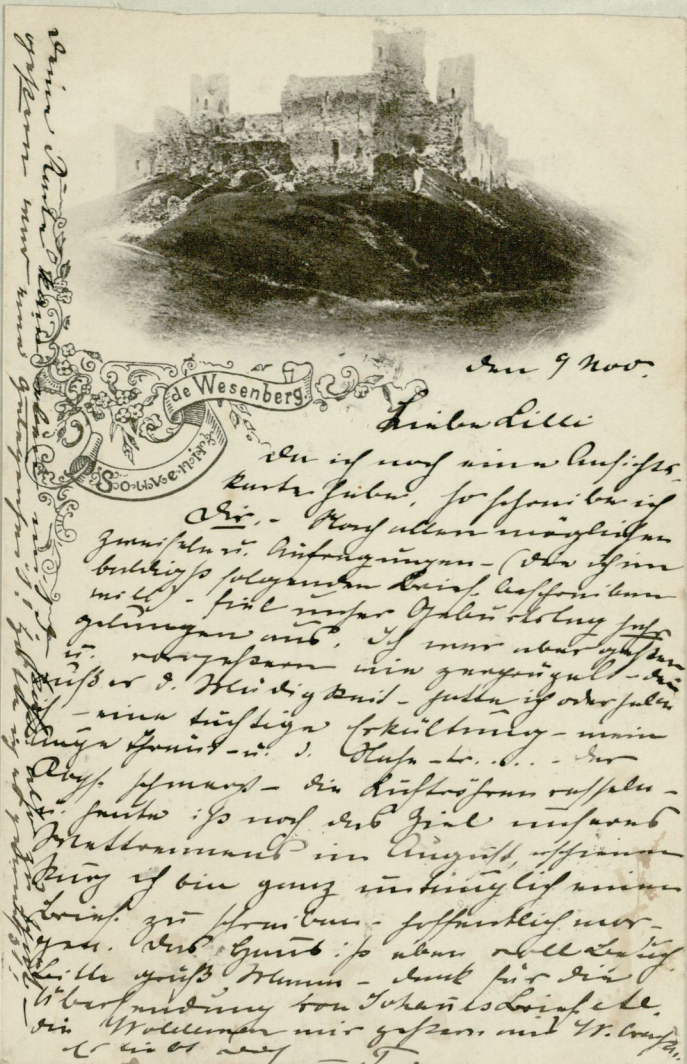 Souvenir
de Wesenberg
den 9 Nov.
Liebe Lilli
Da ich noch eine Ansichts-
karte habe, so schreibe ich
Dir. - Nach allen möglichen
Zweifeln u. Aufregungen - (die ich im
baldigst folgenden Brief beschreiben
will) - fiel unser Geburtstag sehr
gelungen aus. Ich war aber gestern
u. vorgestern wie geprügelt - denn
außer d. Müdigkeit - hatte ich oder habe
ich - eine tüchtige Erkältung - mein
Auge thränt - u. d. Nase - tr..... - der
Kopf schmerzt - die Luftröhren rasseln -
u. heute ist noch das Ziel unseres
Wettrennens im August, erschienen
kurz ich bin ganz untauglich einen
Brief zu schreiben - hoffentlich mor-
gen. Das Haus ist eben voll Besuch
bitte grüß Mama - dank für die
Übersendung von Johannes Brief etc.
die Woldemar mir gestern aus W. brachte.
Er
Deine
gestern